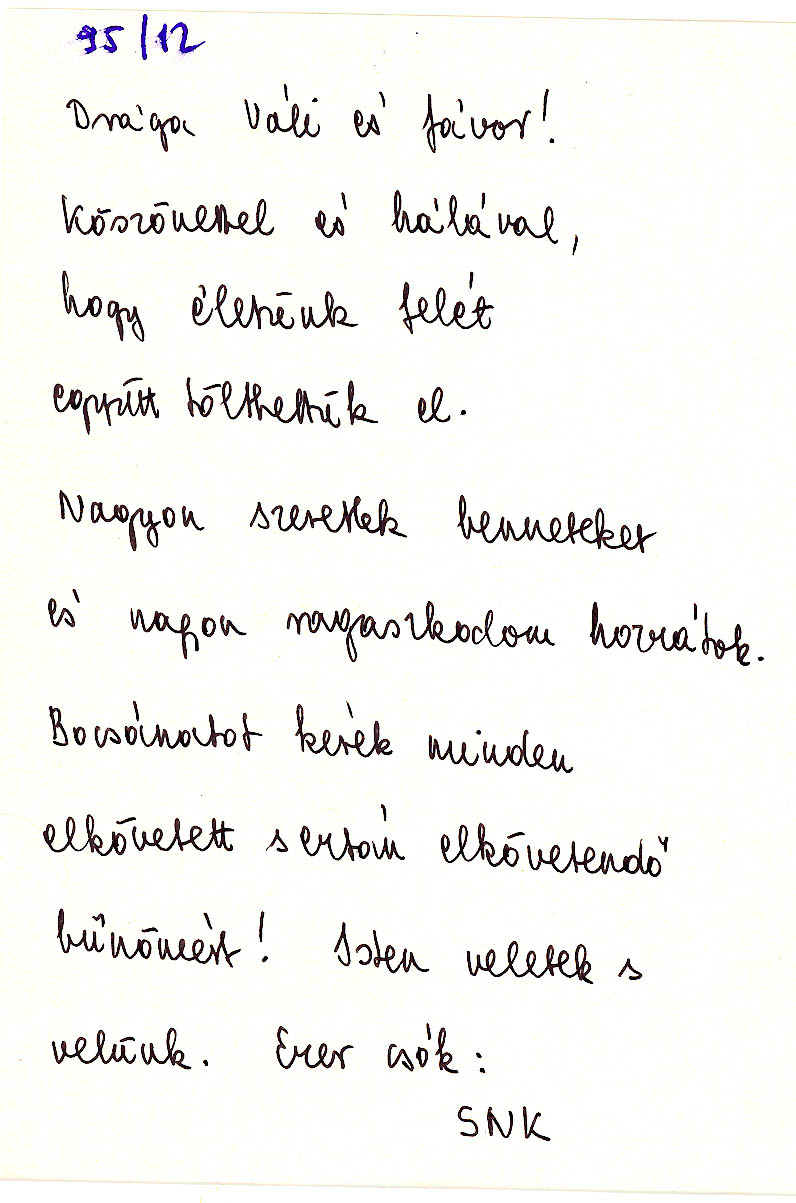 95/12
Drága Váli és Jávor!
Köszönettel és hálával,
hogy életünk felét
együtt tölthettük el.
Nagyon szeretlek benneteket
és nagyon ragaszkodom hozzátok.
Bocsánatot kérek minden
elkövetett s ezután elkövetendő
bűnömért! Isten veletek s
velünk. Ezer csók:
SNK